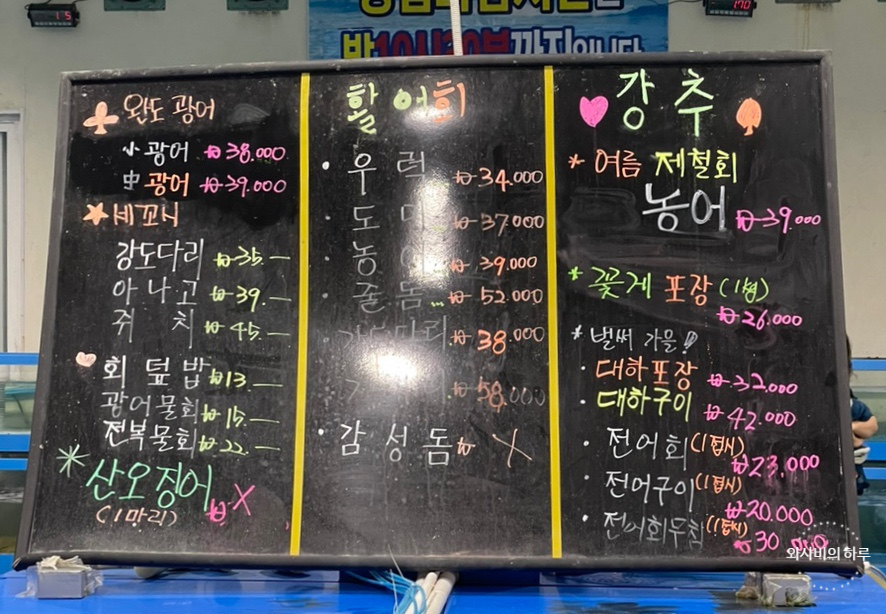 밤10시30분까지입니다
완도 광어
小 광어 ₩38.000
中 광어 ₩39.000
세꼬시
강도다리 ₩35.—
아나고 ₩39.—
쥐 치 ₩45.—
회덮밥 ₩13.—
광어물회 ₩15.—
전복물회 ₩22.—
산오징어
(1마리) ₩ X
활어회
우 럭 ₩34.000
도 미 ₩37.000
농 어 ₩39.000
줄 돔 ... ₩52.000
다리 ₩38.000
58.000
감 성 돔 ₩ X
강추
* 여름 제철회
농어 ₩39.000
* 꽃게 포장 (1kg)
₩26.000
* 벌써 가을!!
대하포장 ₩32,000
대하구이 ₩42.000
전어회 (1접시) ₩23.000
전어구이 (1접시) ₩20.000
전어회무침 (1접시) ₩30
와사비의 하루